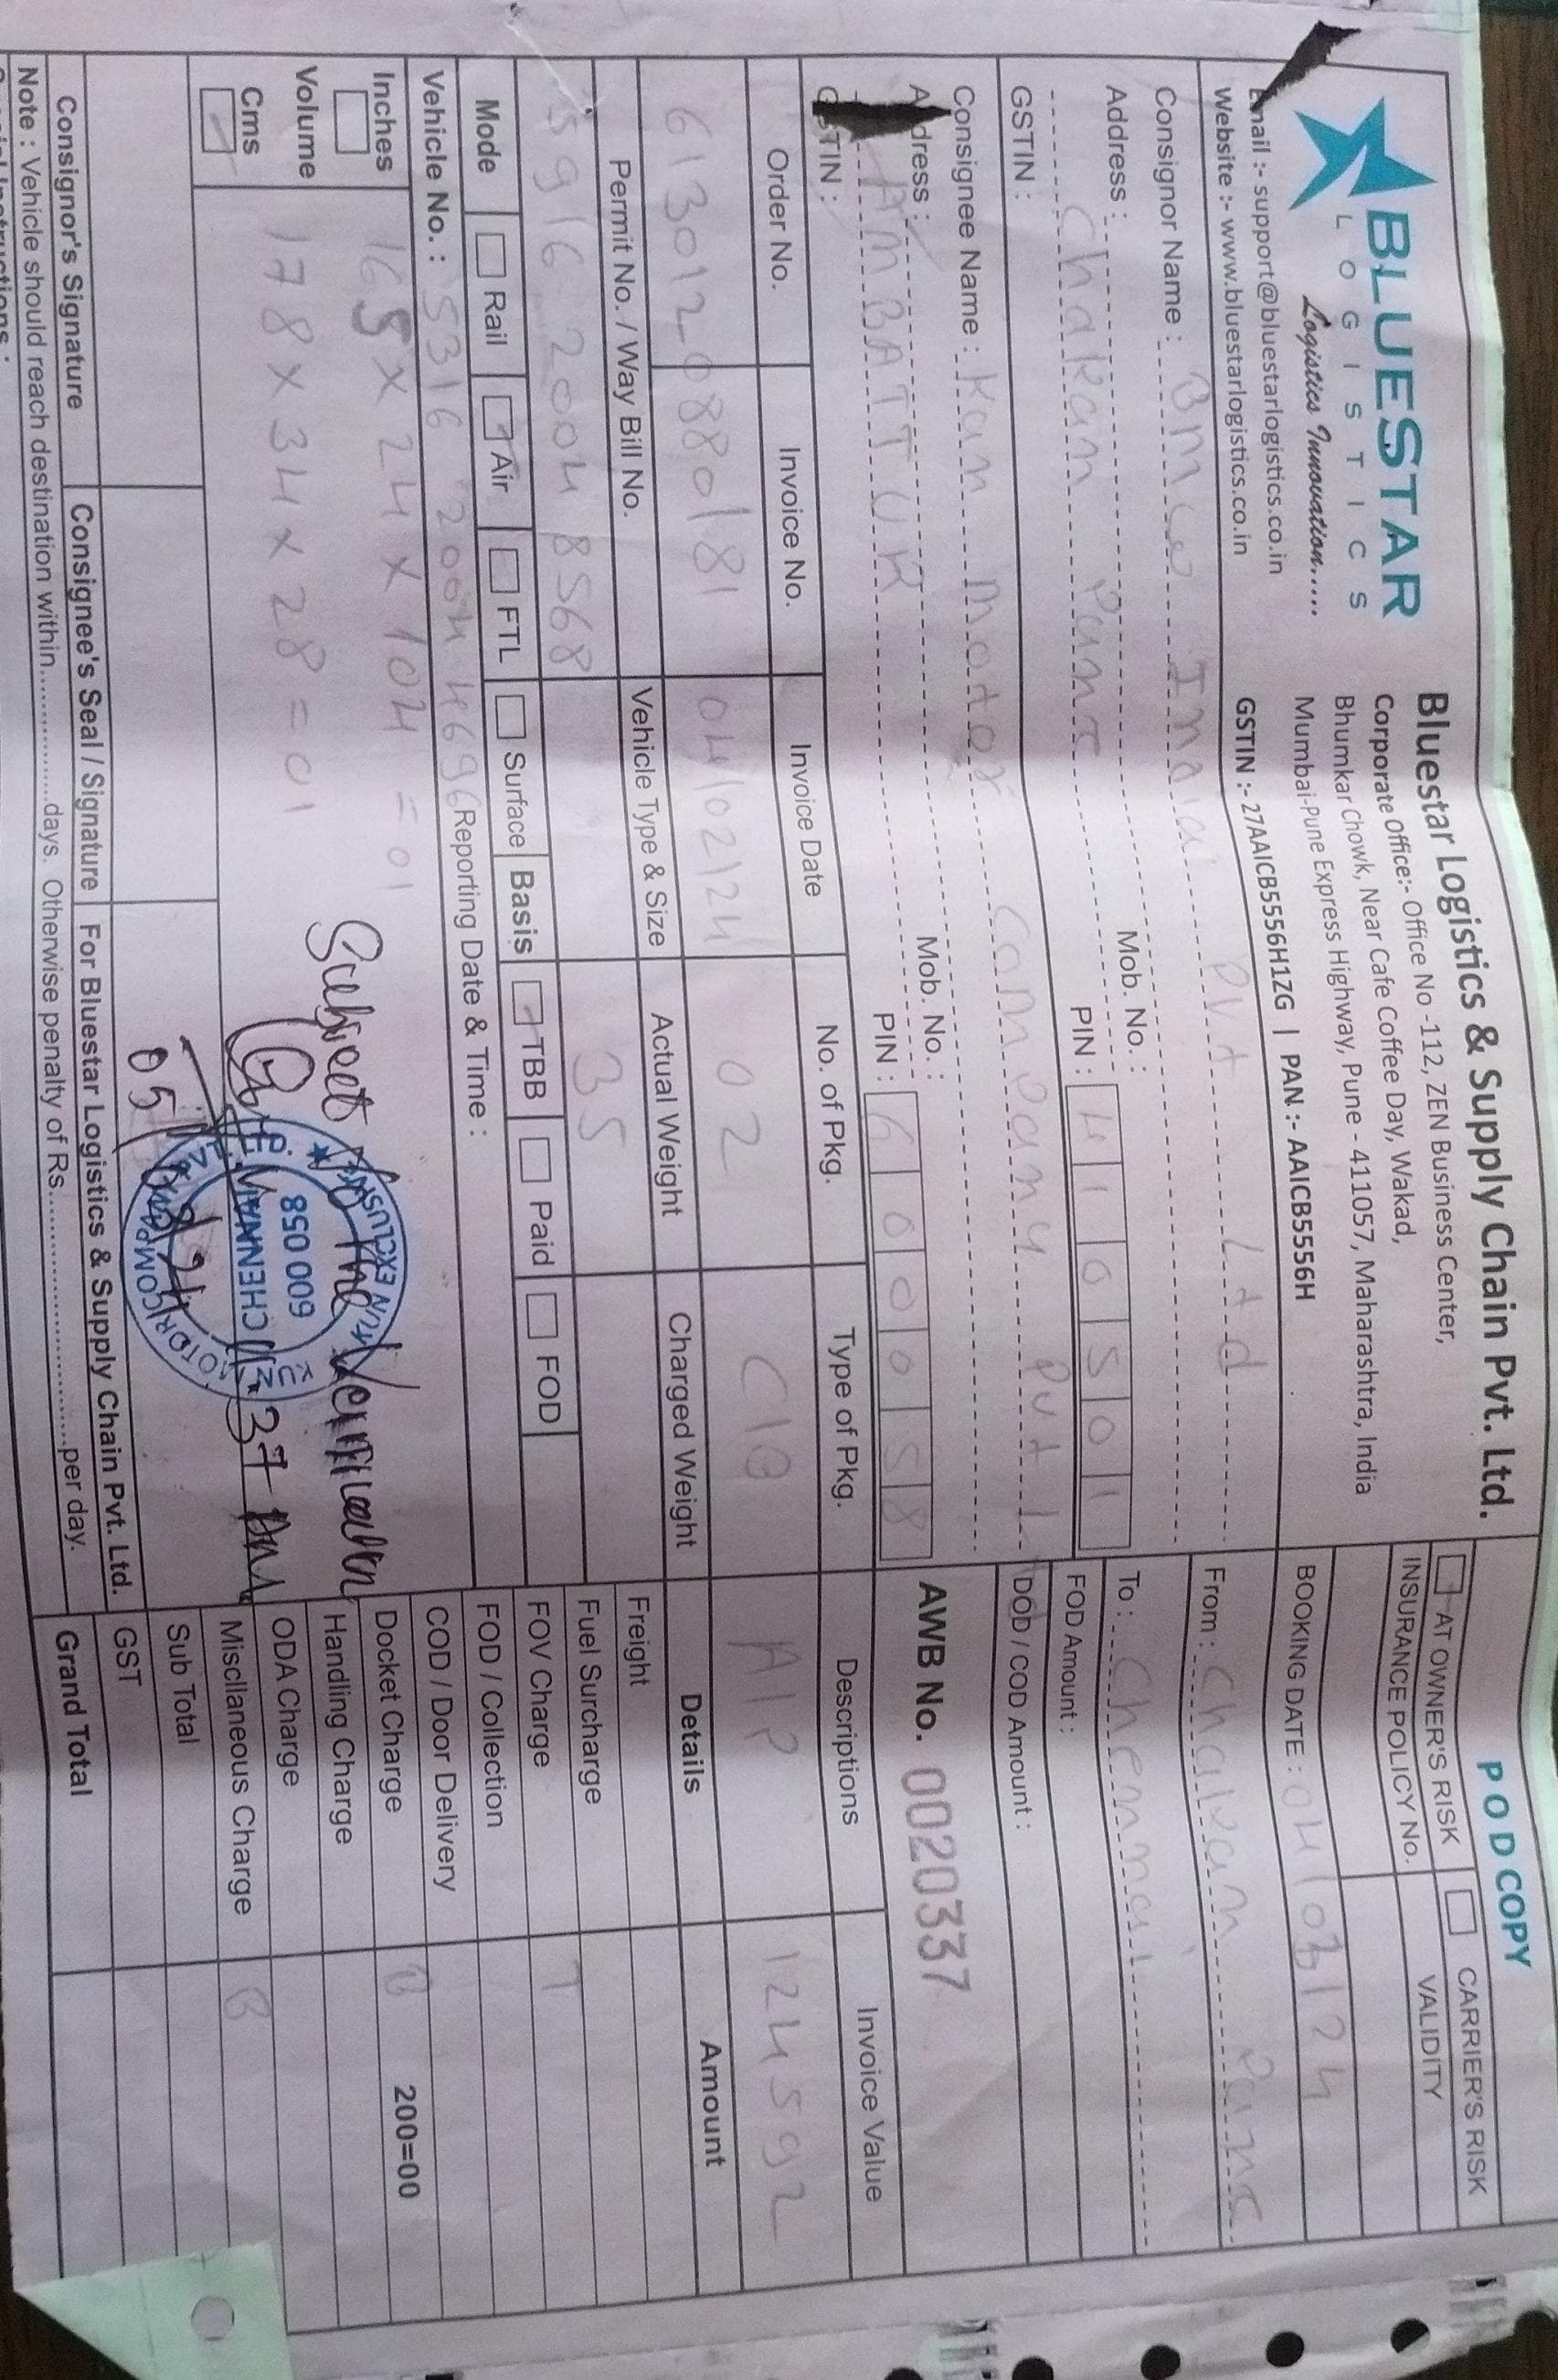 BLUESTAR
LOGISTICS
Logistics Innovation.....
Email :- support@bluestarlogistics.co.in
Website :- www.bluestarlogistics.co.in
Bluestar Logistics & Supply Chain Pvt. Ltd.
Corporate Office:- Office No -112, ZEN Business Center,
Bhumkar Chowk, Near Cafe Coffee Day, Wakad,
Mumbai-Pune Express Highway, Pune - 411057, Maharashtra, India
GSTIN :- 27AAICB5556H1ZG | PAN :- AAICB5556H
POD COPY
AT OWNER'S RISK CARRIER'S RISK
INSURANCE POLICY No. VALIDITY
BOOKING DATE : 04/03/24
From : Chakan Pune
To : Chennai
FOD Amount :
DOD / COD Amount :
AWB No. 0020337
Consignor Name : BMW India Pvt Ltd
Address :
Mob. No. :
Chakan Pune
PIN : 410501
GSTIN :
Consignee Name : Kun Motor Company Pvt Ltd
Address :
Mob. No. :
AMBATTUR
PIN : 600058
GSTIN :
Order No. Invoice No. Invoice Date No. of Pkg. Type of Pkg. Descriptions Invoice Value
6130120880/81 04/02/24 02 C/B A/P 124592
Permit No. / Way Bill No. Vehicle Type & Size Actual Weight Charged Weight Details Amount
5916 2004 8568 35
Freight
Fuel Surcharge
FOV Charge T
FOD / Collection
COD / Door Delivery
Docket Charge B 200=00
Handling Charge
ODA Charge
Miscllaneous Charge B
Sub Total
GST
Grand Total
Mode Rail Air FTL Surface Basis TBB Paid FOD
Vehicle No. : 5316 2004 4696 Reporting Date & Time :
Inches
Volume
Cms
165 x 24 x 104 = 01
178 x 34 x 28 = 01
Subject to the Verification
11:37 AM
05/03/24
KUN EXCLUSIVE
KUN MOTOR COMPANY PVT. LTD.
CHENNAI
600 058
Consignor's Signature Consignee's Seal / Signature For Bluestar Logistics & Supply Chain Pvt. Ltd.
Note : Vehicle should reach destination within................days. Otherwise penalty of Rs..............................per day.
Special Instructions :